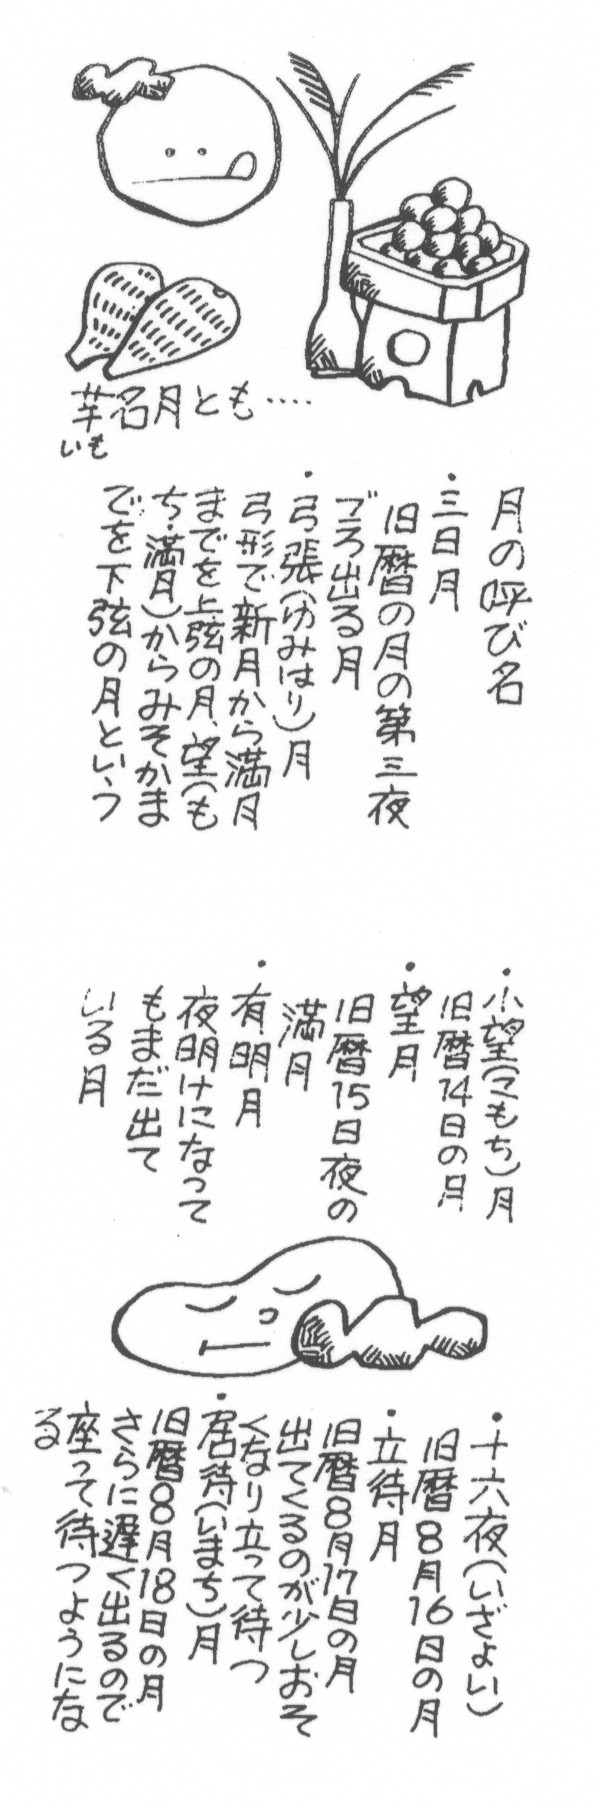 芋名月とも‥‥
いも
月の呼び名
・三日月
旧暦の月の第三夜
ごろ出る月
・弓張(ゆみはり)月
弓形で新月から満月
までを上弦の月、望(も
ち・満月)からみそかま
でを下弦の月という
・小望(こもち)月
旧暦14日の月
・望月
旧暦15日夜の
満月
・有明月
夜明けになって
もまだ出て
いる月
・十六夜(いざよい)
旧暦8月16日の月
・立待月
旧暦8月17日の月
出てくるのが少しおそ
くなり立って待つ
・居待(いまち)月
旧暦8月18日の月
さらに遅く出るので
座って待つようにな
る